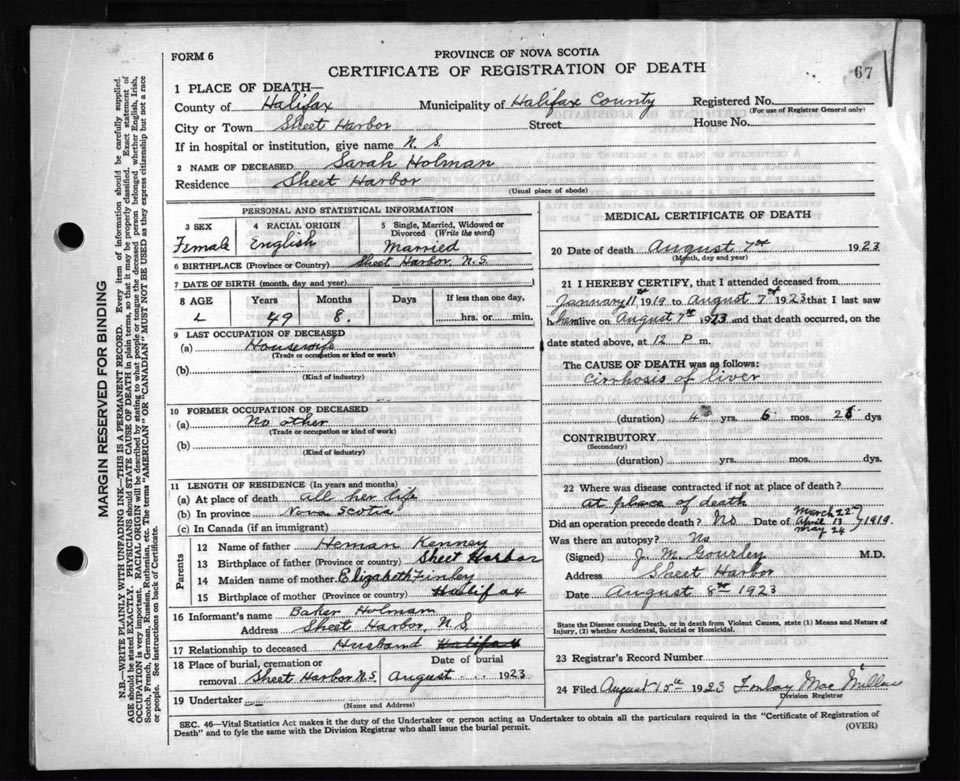 FORM 6
PROVINCE OF NOVA SCOTIA
CERTIFICATE OF REGISTRATION OF DEATH
67
1 PLACE OF DEATH—
County of Halifax Municipality of Halifax County Registered No.
(For use of Registrar General only)
City or Town Sheet Harbor Street House No.
If in hospital or institution, give name N. S.
2 NAME OF DECEASED Sarah Holman
Residence Sheet Harbor
(Usual place of abode)
PERSONAL AND STATISTICAL INFORMATION
3 SEX 4 RACIAL ORIGIN 5 Single, Married, Widowed or Divorced (Write the word)
Female English Married
6 BIRTHPLACE (Province or Country) Sheet Harbor, N.S.
7 DATE OF BIRTH (month, day and year)
8 AGE Years Months Days If less than one day,
49 8. hrs. or min.
9 LAST OCCUPATION OF DECEASED
(a) Housewife
(Trade or occupation or kind or work)
(b)
(Kind of industry)
10 FORMER OCCUPATION OF DECEASED
(a) No other
(Trade or occupation or kind of work)
(b)
(Kind of industry)
11 LENGTH OF RESIDENCE (In years and months)
(a) At place of death all her life
(b) In province Nova Scotia
(c) In Canada (if an immigrant)
Parents
12 Name of father Heman Kenney
13 Birthplace of father (Province or country) Sheet Harbor
14 Maiden name of mother Elizabeth Finley
15 Birthplace of mother (Province or country) Halifax
16 Informant's name Baker Holmam
Address Sheet Harbor, N.S.
17 Relationship to deceased Husband Halifax
18 Place of burial, cremation or removal Sheet Harbor N.S. Date of burial August 1923
19 Undertaker
(Name and Address)
MEDICAL CERTIFICATE OF DEATH
20 Date of death August 7th 1923
(Month, day and year)
21 I HEREBY CERTIFY, that I attended deceased from
January 11th 1919 to August 7th 1923 that I last saw
her alive on August 7th 1923 and that death occurred, on the
date stated above, at 12 P. m.
The CAUSE OF DEATH was as follows:
Cirrhosis of liver
(duration) 4 yrs. 6 mos. 26 dys
CONTRIBUTORY
(Secondary)
(duration) yrs. mos. dys.
22 Where was disease contracted if not at place of death?
at place of death
Did an operation precede death? No Date of March 22 April 13 May 24 1919.
Was there an autopsy? No
(Signed) J. M. Gourley M.D.
Address Sheet Harbor
Date August 8th 1923
State the Disease causing Death, or in death from Violent Causes, state (1) Means and Nature of
Injury, (2) whether Accidental, Suicidal or Homicidal.
23 Registrar's Record Number
24 Filed August 15th 1923 Finlay MacMillan
Division Registrar
SEC. 46—Vital Statistics Act makes it the duty of the Undertaker or person acting as Undertaker to obtain all the particulars required in the "Certificate of Registration of
Death" and to fyle the same with the Division Registrar who shall issue the burial permit.
(OVER)
MARGIN RESERVED FOR BINDING
N.B.—WRITE PLAINLY WITH UNFADING INK—THIS IS A PERMANENT RECORD. Every item of information should be carefully supplied.
AGE should be stated EXACTLY. PHYSICIANS should STATE CAUSE OF DEATH in plain terms, so that it may be properly classified. Exact statement of
OCCUPATION is very important. RACIAL ORIGIN will be described by stating to what people or tongue the deceased person belonged whether English, Irish,
Scotch, French, German, Russian, Ruthenian, etc. The terms "AMERICAN" OR "CANADIAN" MUST NOT BE USED as they express citizenship but not a race
or people. See instructions on back of Certificate.